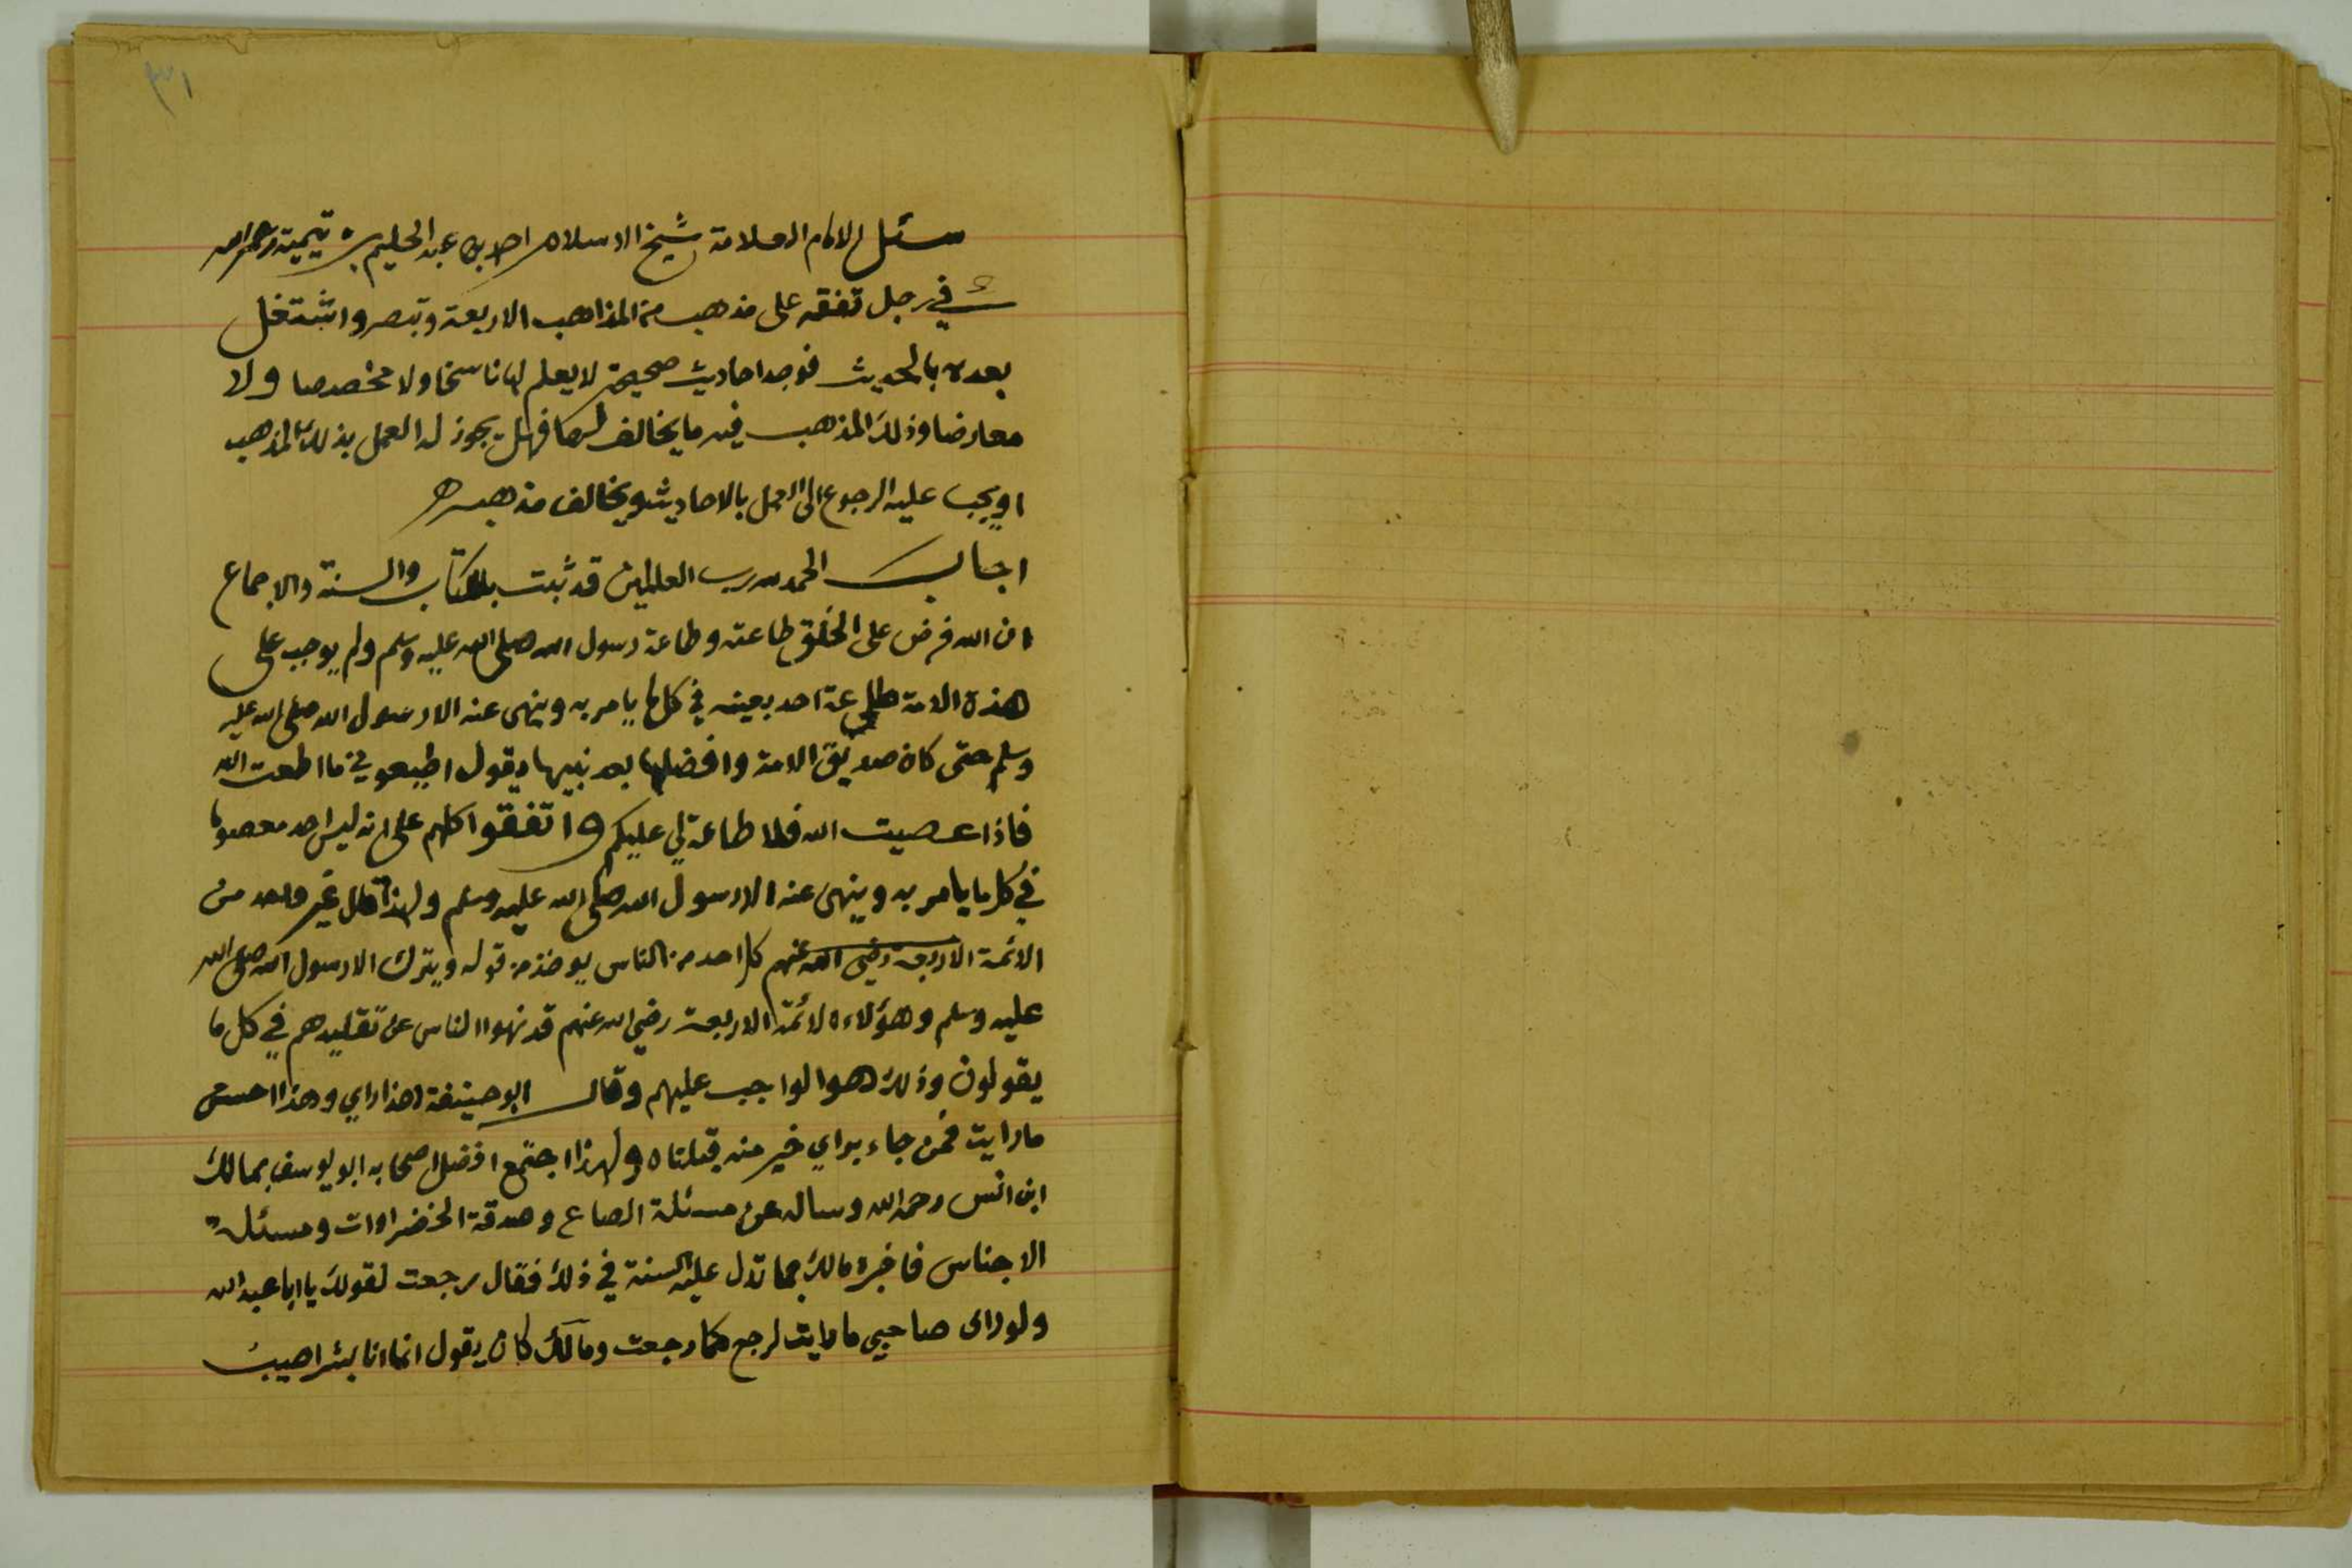 ٣١
سئل الامام العلامة شيخ الاسلام احمد بن عبد الحليم بن تيمية رحمه الله
في رجل تفقه على مذهب من المذاهب الاربعة وتبصر واشتغل
بعده بالحديث فوجد احاديث صحيحة لا يعلم لها ناسخا ولا مخصصا ولا
معارضا وذلك المذهب فيه ما يخالف لها فهل يجوز له العمل بذلك المذهب
او يجب عليه الرجوع الى العمل بالاحاديث ويخالف مذهبه
اجاب الحمد لله رب العالمين قد ثبت بالكتاب والسنة والاجماع
ان الله فرض على الخلق طاعته وطاعة رسول الله صلى الله عليه وسلم ولم يوجب على
هذه الامة طاعة احد بعينه في كل ما يامر به وينهى عنه الا رسول الله صلى الله عليه
وسلم حتى كان صديق الامة وافضلها بعد نبيها يقول اطيعوني ما اطعت الله
فاذا عصيت الله فلا طاعة لي عليكم واتفقوا كلهم على انه ليس احد معصوما
في كل ما يامر به وينهى عنه الا رسول الله صلى الله عليه وسلم ولهذا قال غير واحد من
الائمة الاربعة رضي الله عنهم كل احد من الناس يوخذ من قوله ويترك الا رسول الله صلى الله
عليه وسلم وهؤلاء الائمة الاربعة رضي الله عنهم قد نهوا الناس عن تقليدهم في كل ما
يقولون وذلك هو الواجب عليهم وقال ابو حنيفة هذا رايي وهذا احسن
ما رايت فمن جاء براي خير منه قبلناه ولهذا اجتمع افضل اصحابه ابو يوسف بمالك
ابن انس رحمه الله وساله عن مسئلة الصاع وصدقة الخضراوات ومسئلة
الاجناس فاخبره مالك بما تدل عليه السنة في ذلك فقال رجعت لقولك يا ابا عبد الله
ولو راى صاحبي ما رايت لرجع كما رجعت ومالك كان يقول انما انا بشر اصيب